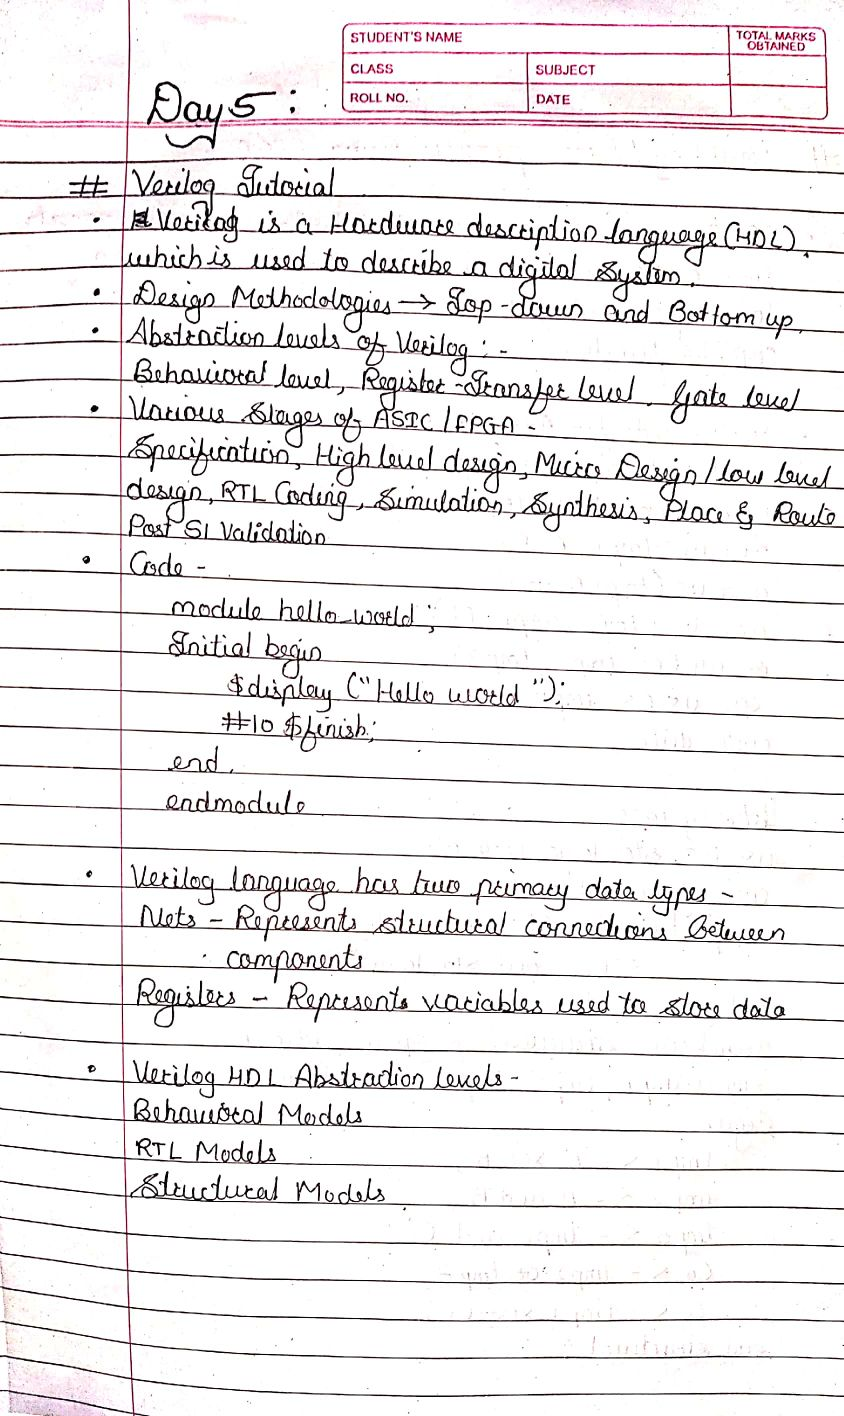 STUDENT'S NAME
TOTAL MARKS OBTAINED
CLASS
SUBJECT
ROLL NO.
DATE
Day 5 :
# Verilog Tutorial
• Verilog is a Hardware description language (HDL),
which is used to describe a digital System.
• Design Methodologies → Top-down and Bottom up.
• Abstraction levels of Verilog : -
Behavioral level, Register-Transfer level, Gate level
• Various Stages of ASIC / FPGA -
Specification, High level design, Micro Design / low level
design, RTL Coding, Simulation, Synthesis, Place & Route
Post SI Validation
• Code -
module hello_world ;
Initial begin
$display ("Hello world ");
#10 $finish;
end.
endmodule
• Verilog language has two primary data types -
Nets - Represents structural connections between
components
Registers - Represents variables used to store data
• Verilog HDL Abstraction levels -
Behavioral Models
RTL Models
Structural Models